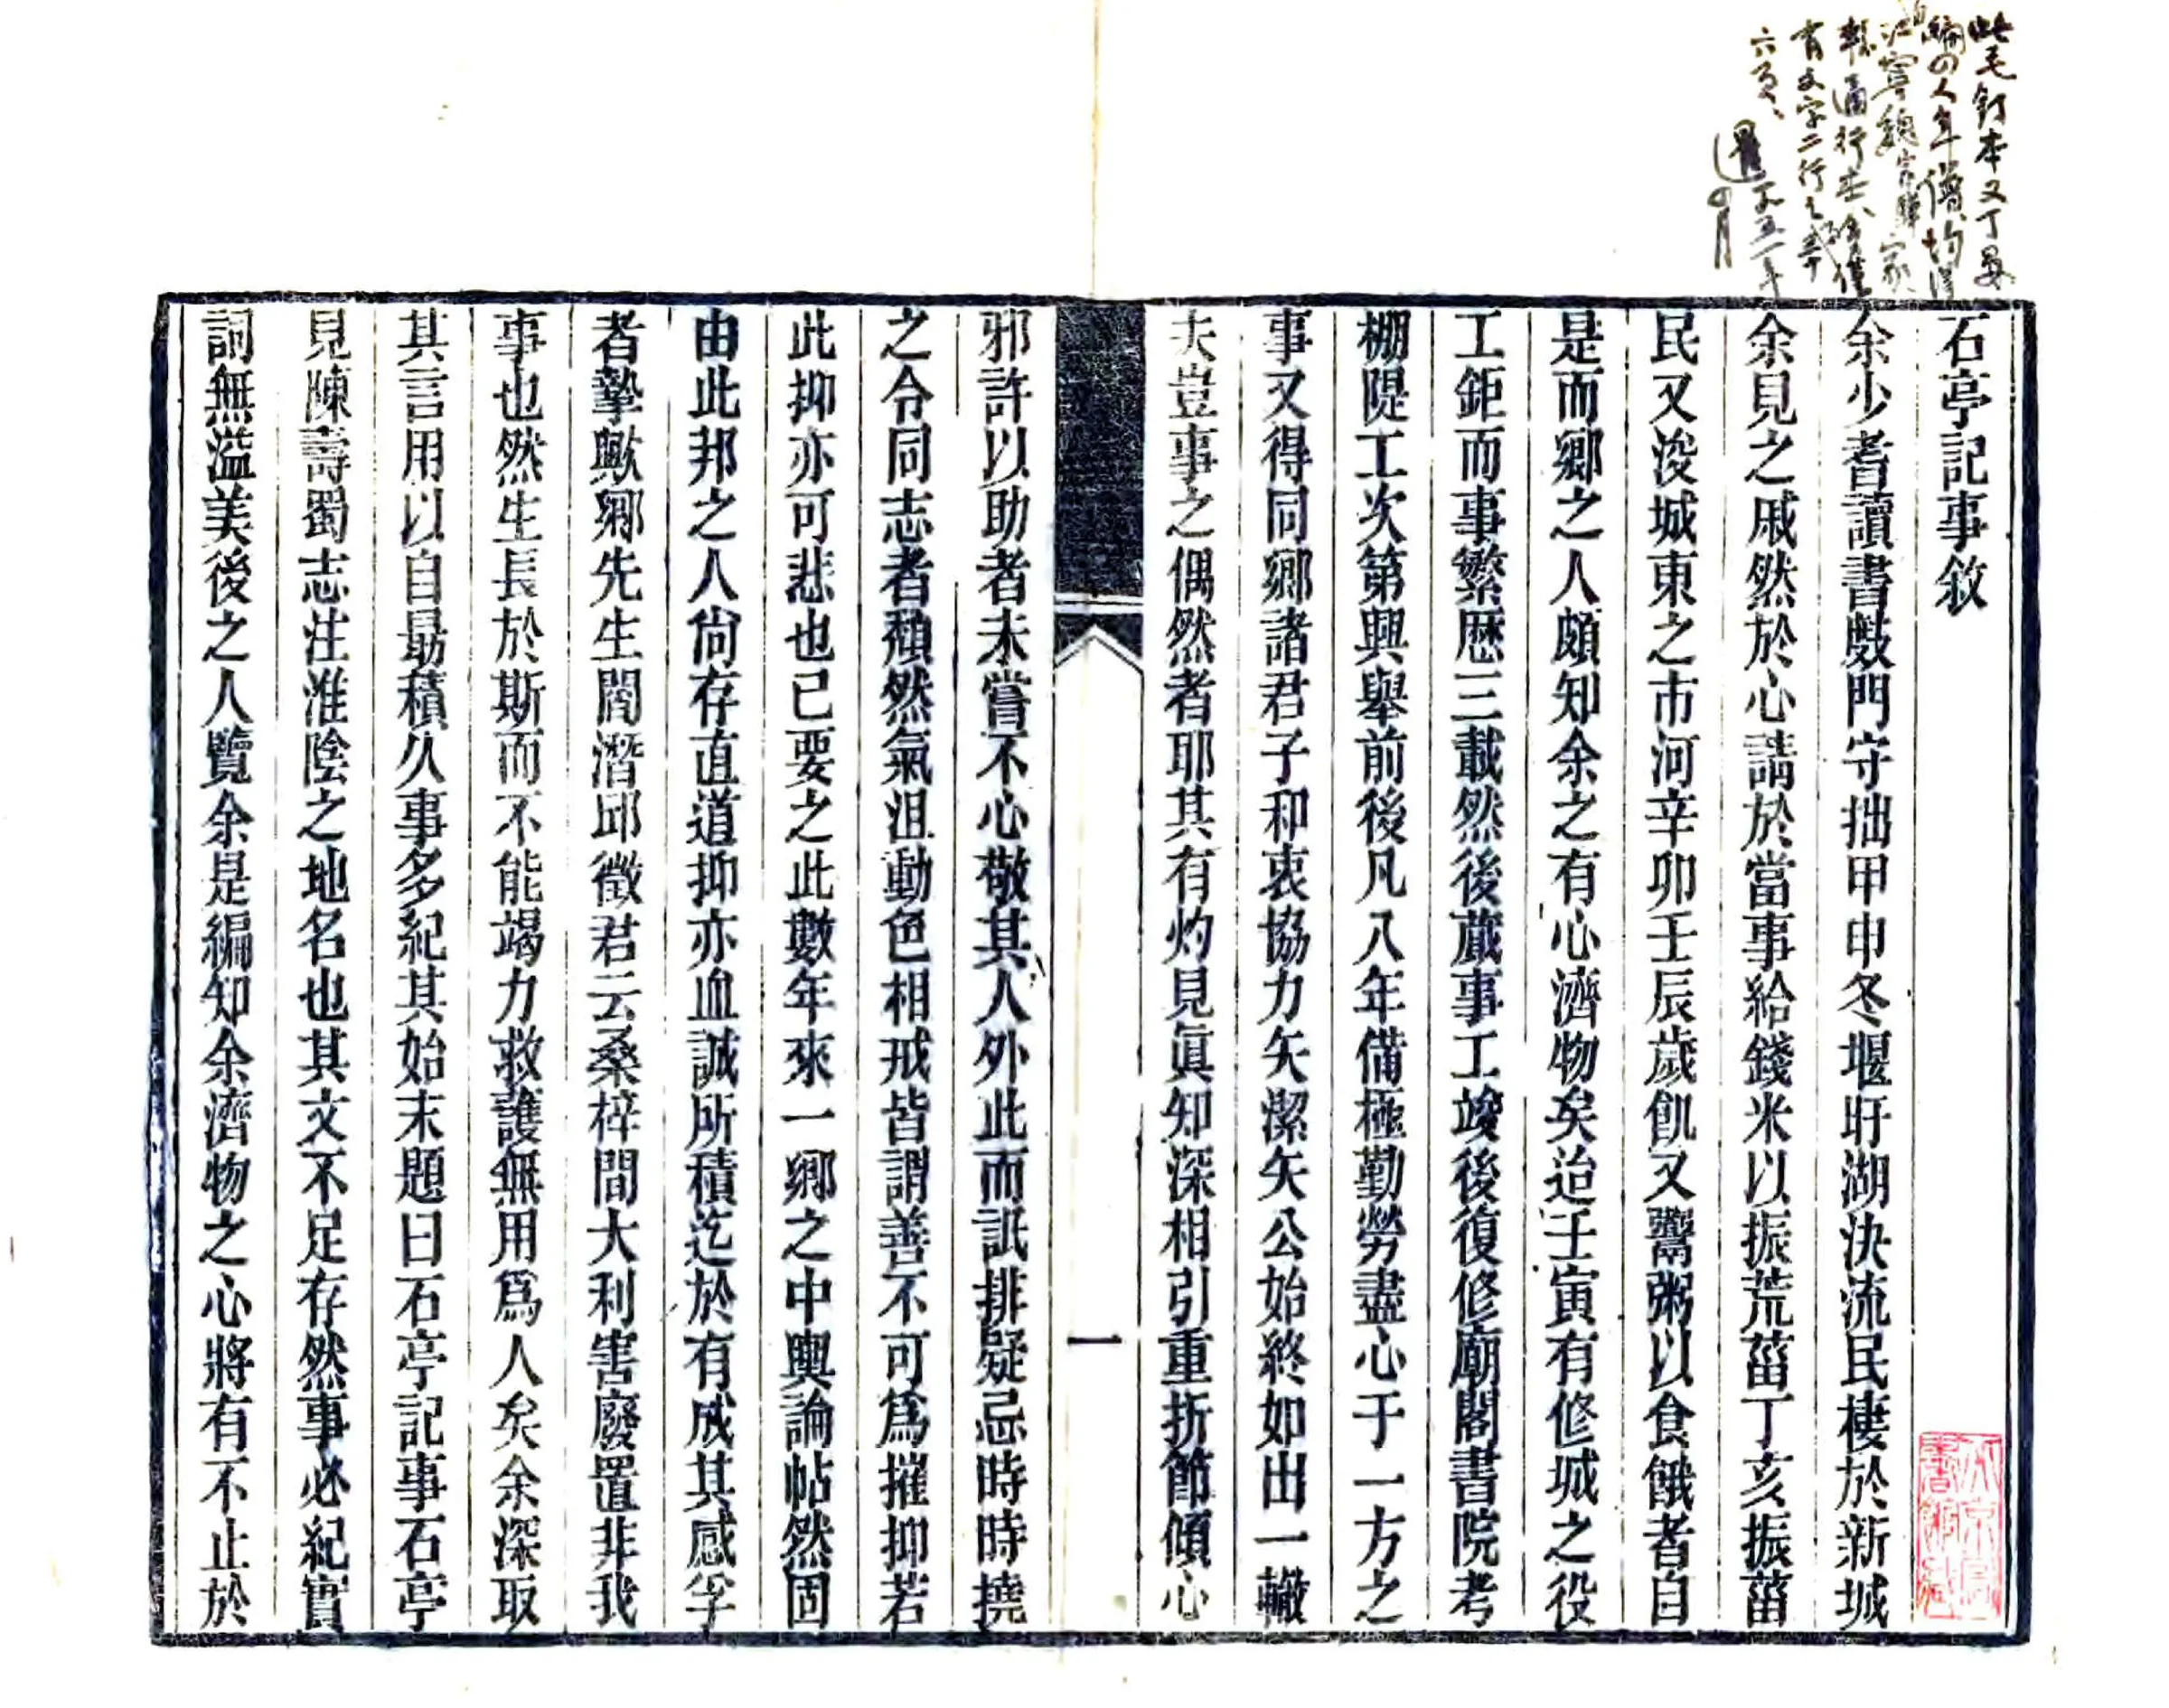 石亭記事敘
余少耆讀書㪣門守拙甲申冬堰盱湖決流民棲於新城
余見之戚然於心請於當事給錢米以振荒菑丁亥振菑
民又浚城東之市河辛卯壬辰歲飢又鬻粥以食餓者自
是而鄉之人頗知余之有心濟物矣迨壬寅有修城之役
工鉅而事繁歷三載然後蕆事工竣後復修廟閣書院考
棚隄工次第興舉前後凡八年備極勤勞盡心于一方之
事又得同鄉諸君子和衷協力矢潔矢公始終如出一轍
夫豈事之偶然者耶其有灼見眞知深相引重折節傾心
一
邪許以助者未嘗不心敬其人外此而詆排疑忌時時撓
之令同志者頹然氣沮動色相戒皆謂善不可爲摧抑若
此抑亦可悲也已要之此數年來一鄉之中輿論帖然固
由此邦之人尙存直道抑亦血誠所積迄於有成其感孚
者摯歟鄉先生閻潛邱徵君云桑梓間大利害廢置非我
事也然生長於斯而不能竭力救護無用爲人矣余深取
其言用以自勗積久事多紀其始末題曰石亭記事石亭
見陳壽蜀志注淮陰之地名也其文不足存然事必紀實
詞無溢美後之人覽余是編知余濟物之心將有不止於